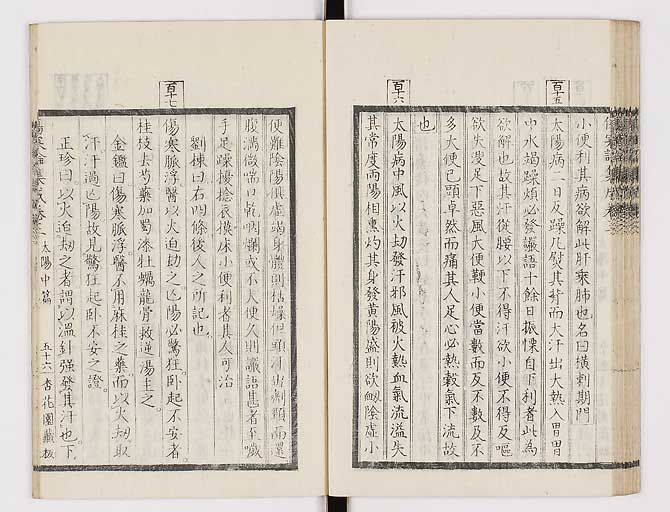 百十五
小便利其病欲解此肝乘肺也名曰橫刺期門
太陽病二日反躁凡熨其背而大汗出大熱入胃胃
中水竭躁煩必發讝語十餘日振慄自下利者此為
欲解也故其汗從腰以下不得汗欲小便不得反嘔
欲失溲足下惡風大便鞕小便當數而反不數及不
多大便已頭卓然而痛其人足心必熱穀氣下流故
也
百十六
太陽病中風以火劫發汗邪風被火熱血氣流溢失
其常度兩陽相熏灼其身發黃陽盛則欲衄陰虛小
便難陰陽俱虛竭身體則枯燥但頭汗出劑頸而還
腹滿微喘口乾咽爛或不大便久則讝語甚者至噦
手足躁擾捻衣摸床小便利者其人可治
劉棟曰右四條後人之所記也
百十七
傷寒脈浮醫以火迫劫之亡陽必驚狂臥起不安者
桂枝去芍藥加蜀漆牡蠣龍骨救逆湯主之
金鑑曰傷寒脈浮醫不用麻桂之藥而以火劫取
汗汗過亡陽故見驚狂起臥不安之證
正珍曰以火迫劫之者謂以溫針強發其汗也下
太陽中篇 五十六 杏花園藏板